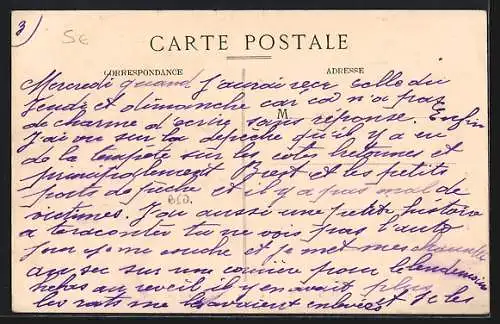 3)
5€
CARTE POSTALE
CORRESPONDANCE
ADRESSE
M
Mercredi quand j'aurai reçu celle du
Jeudi et dimanche car ça n'a pas
de charme d'écrire sans réponse. Enfin
J'ai vu sur la dépêche qu'il y a eu
de la tempête sur les cotes bretonnes et
principalement Brest et les petits
ports de pêche et il y a pas mal de
victimes. J'ai aussi une petite histoire
a te raconter tu ne vois pas l'autre
jour je me couche et je met mes
au sec sur un pour le lendemain
au reveil il y en avait plus
les rats me avaient enlevées et les